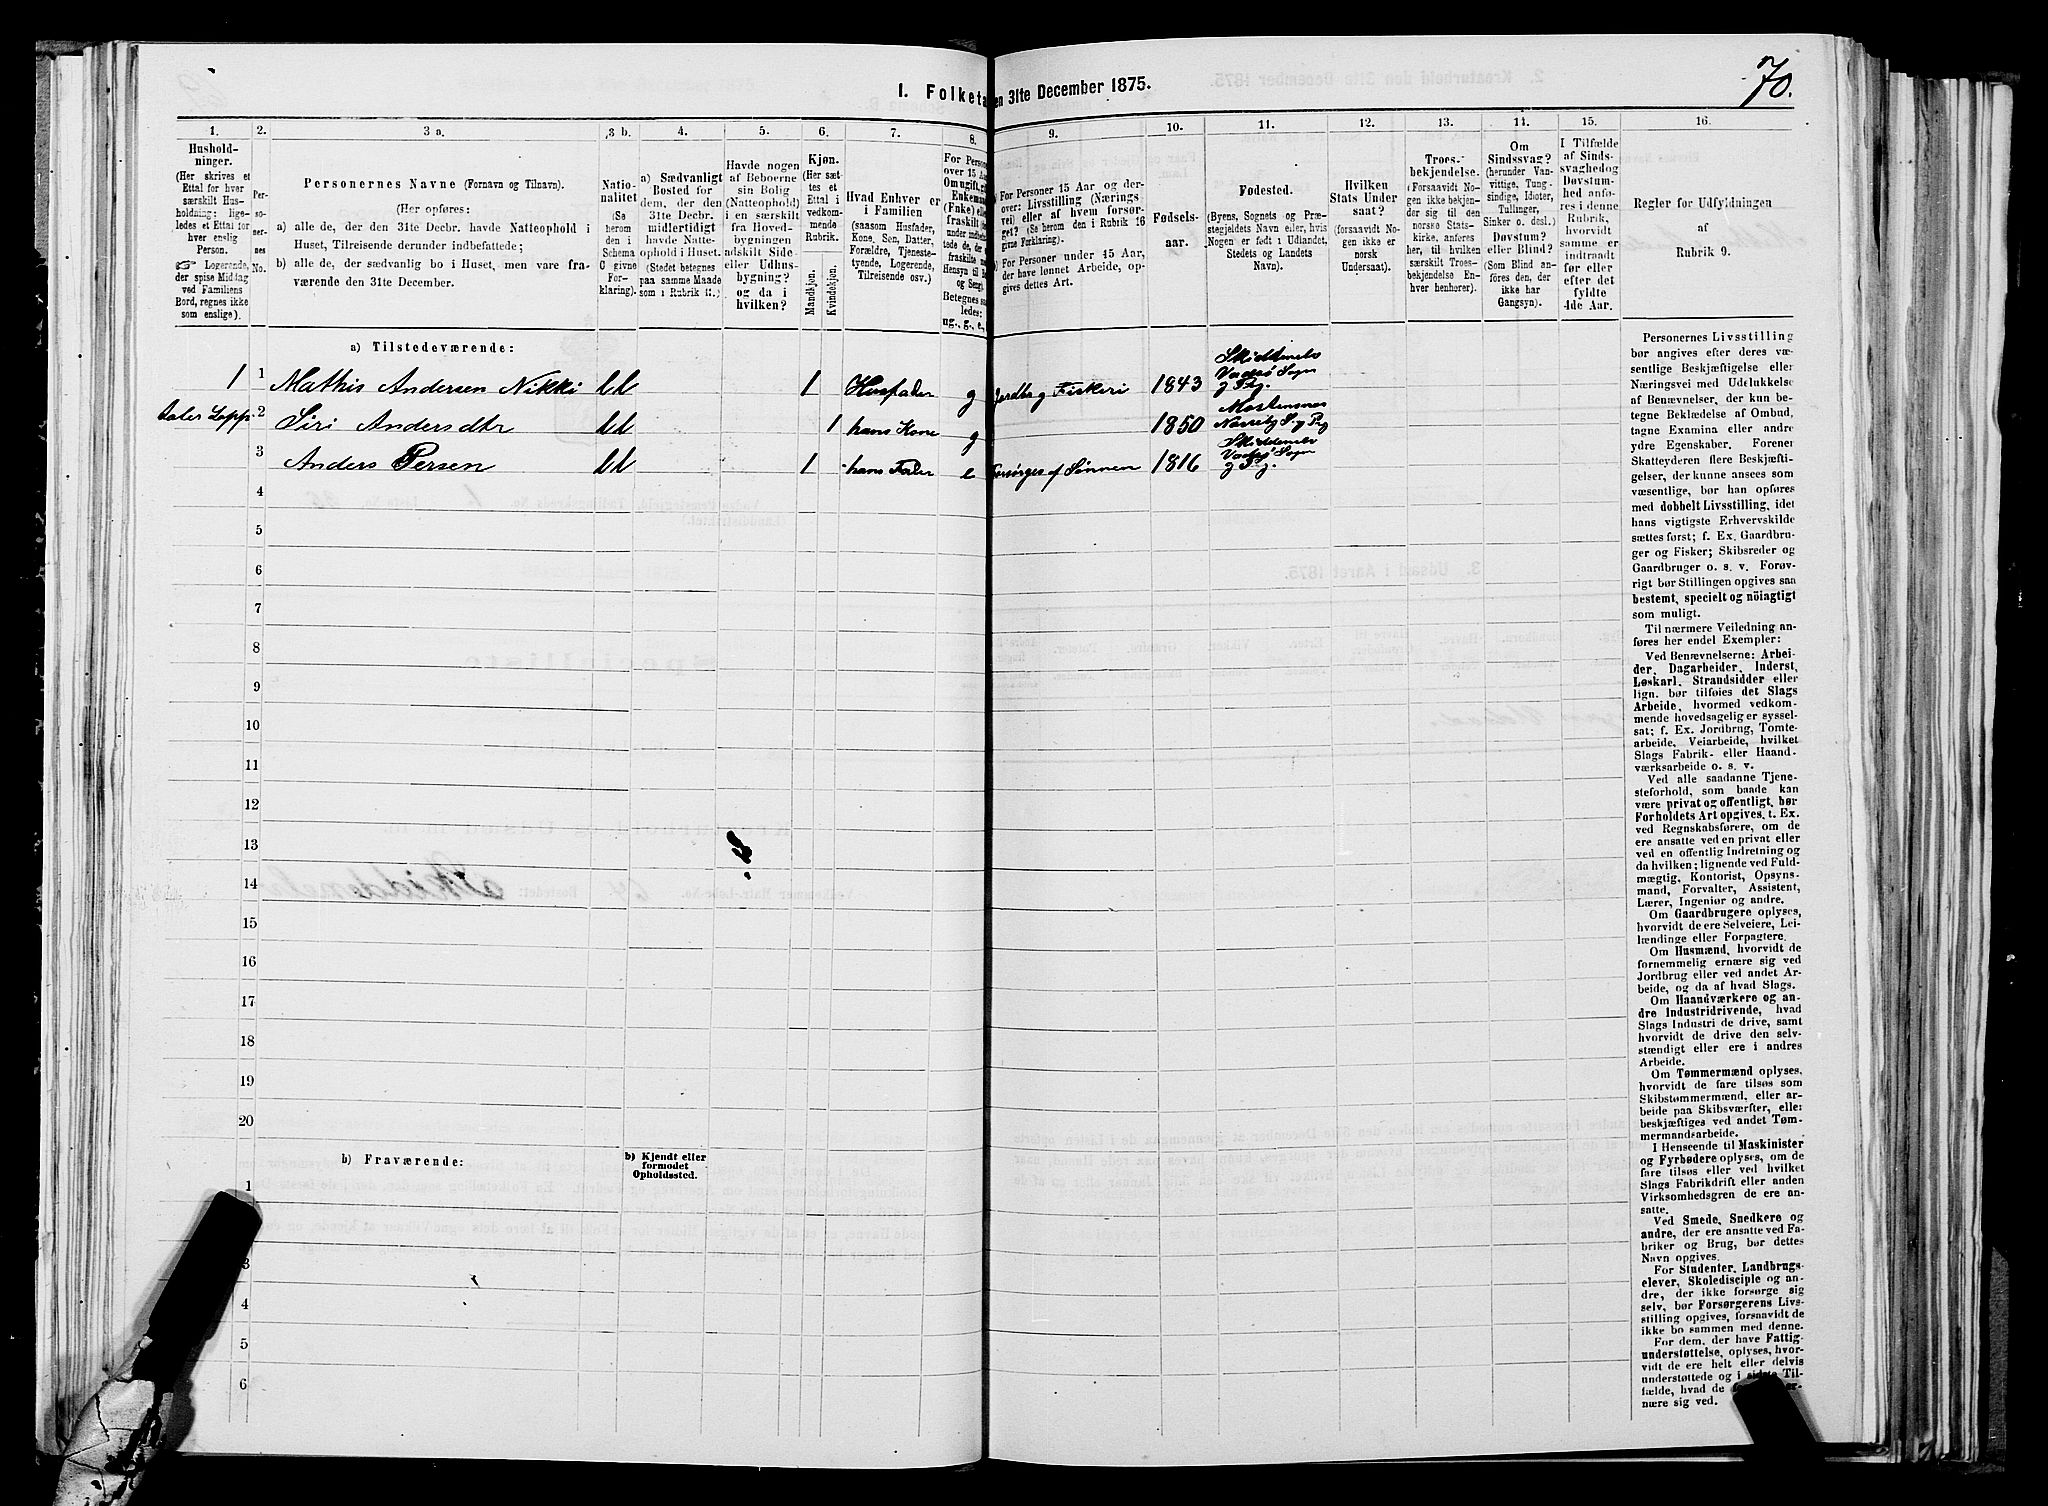 70.
I. Folketa en 31te December 1875.
1.
Hushold-
ninger.
(Her skrives et
Ettal for hver
særskilt Hus-
holdning; lige-
ledes et Ettal for
hver enslig
Person.
☞ Logerende,
der spise Middag
ved Familiens
Bord, regnes ikke
som enslige).
2.
Per-
so-
ner-
nes
No.
3 a.
Personernes Navne (Fornavn og Tilnavn).
(Her opføres:
a) alle de, der den 31te Decbr. havde Natteophold i
Huset, Tilreisende derunder indbefattede;
b) alle de, der sædvanlig bo i Huset, men vare fra-
værende den 31te December.
3 b.
Natio-
nalitet
(Se
herom
den i
Schema
C givne
For-
klaring).
4.
a) Sædvanligt
Bosted for
dem, der den
31te Decbr.
midlertidigt
havde Natte-
ophold i Huset.
(Stedet betegnes
paa samme Maade
som i Rubrik 11.)
5.
Havde nogen
af Beboerne
sin Bolig
(Natteophold)
i en særskilt
fra Hoved-
bygningen
adskilt Side-
eller Udhus-
bygning?
og da i
hvilken?
6.
Kjøn.
(Her sæt-
tes et
Ettal i
vedkom-
mende
Rubrik.
Mandkjøn.
Kvindekjøn.
7.
Hvad Enhver er
i Familien
(saasom Husfader,
Kone, Søn, Datter,
Forældre, Tjeneste-
tyende, Logerende,
Tilreisende osv.)
8.
For Perso
over 15 Aar
Om ugift, gif
Enkema
(Fnke) elle
fraskilt
ledes:
ug., g., e.,
9.
For Personer 15 Aar og der-
over: Livsstilling (Nærings
vei) eller af hvem forsør-
get? (Se herom den i Rubrik 16
givne Forklaring).
For Personer under 15 Aar,
der have lønnet Arbeide, op-
gives dettes Art.
10.
Fødsels-
aar.
11.
Fødested.
(Byens, Sognets og Præ-
stegjeldets Navn eller, hvis
Nogen er født i Udlandet,
Stedets og Landets
Navn).
12.
Hvilken
Stats Under
saat?
(forsaavidt No-
gen ikke er
norsk
Undersaat).
13.
Troes-
bekjendelse.
(Forsaavidt No-
gen ikke bekjen-
der sig til den
norske Stats-
kirke, anføres
her, til hvilken
særskilt Troes-
bekjendelse En-
hver henhører).
14.
Om
Sindssvag?
(herunder Van-
vittige, Tung-
sindige, Idioter,
Tullinger,
Sinker o. desl.)
Døvstum?
eller Blind?
(Som Blind an-
føres den, der
ikke har
Gangsyn).
15.
I Tilfælde
af Sinds-
svaghed og
Døvstum-
hed anfø-
res i denne
Rubrik,
hvorvidt
samme er
indtraadt
før eller
efter det
fyldte
4de Aar.
16.
Regler for Udfyldningen
af
Rubrik 9.
a) Tilstedeværende:
1 1 Mathis Andersen Nikki 1 Husfader g Jordbr og Fiskeri 1843 Skiddenels Vadsø Sogn
taler Lapp. 2 Siri Andersdtr 1 hans Kone g 1850
3 Anders Persen 1 hans Fader e Forsørges af Sønnen 1816 Skiddenels Vadsø Sogn
4
5
6
7
8
9
10
11
12
13
14
15
16
17
18
19
20
b) Fraværende:
b) Kjendt eller
formodet
Opholdssted.
1
3
4
5
6
Personernes Livsstilling
bør angives efter deres væ-
sentlige Beskjæftigelse eller
Næringsvei med Udelukkelse
af Benævnelser, der kun be-
tegne Beklædelse af Ombud,
tagne Examina eller andre
ydre Egenskaber. Forener
Skatteyderen flere Beskjæfti-
gelser, der kunne ansees som
væsentlige, bør han opføres
med dobbelt Livsstilling, idet
hans vigtigste Erhvervskilde
sættes først; f. Ex. Gaardbru-
ger og Fisker; Skibsreder og
Gaardbruger o. s. v. Forøv-
rigt bør Stillingen opgives saa
bestemt, specielt og nöiagtigt
som muligt.
Til nærmere Veiledning an-
føres her endel Exempler:
Ved Benævnelserne: Arbei-
der, Dagarbeider, Inderst,
Løskarl, Strandsidder eller
lign. bør tilføies det Slags
Arbeide, hvormed vedkom-
mende hovedsagelig er syssel-
sat; f. Ex. Jordbrug, Tomte-
arbeide, Veiarbeide, hvilket
Slags Fabrik- eller Haand-
værksarbeide o. s. v.
Ved alle saadanne Tjene-
steforhold, som baade kan
være privat og offentligt, bør
Forholdets Art opgives. t. Ex.
ved Regnskabsførere, om de
ere ansatte ved en privat eller
ved en offentlig Indretning og
da hvilken; lignende ved Fuld-
mægtig, Kontorist, Opsyns-
mand, Forvalter, Assistent,
Lærer, Ingeniør og andre.
Om Gaardbrugere oplyses,
hvorvidt de ere Selveiere, Lei-
lændinge eller Forpagtere.
Om Husmænd, hvorvidt de
fornemmelig ernære sig ved
Jordbrug eller ved andet Ar-
beide, og da af hvad Slags.
Om Haandværkere og an-
dre Industridrivende, hvad
Slags Industri de drive, samt
hvorvidt de drive den selv-
stændigt eller ere i andres
Arbeide.
Om Tømmermænd oplyses,
hvorvidt de fare tilsøs som
Skibstømmermænd, eller ar-
beide paa Skibsværfter, eller
beskjæftiges ved andet Tøm-
mermandsarbeide.
I Henseende til Maskinister
og Fyrbødere oplyses, om de
fare tilsøs eller ved hvilket
Slags Fabrikdrift eller anden
Virksomhedsgren de ere an-
satte.
Ved Smede, Snedkere og
andre, der ere ansatte ved Fa-
briker og Brug, bør dettes
Navn opgives.
For Studenter, Landbrugs-
elever, Skoledisciple og an-
dre, der ikke forsørge sig
selv, bør Forsørgerens Livs-
stilling opgives, forsaavidt de
ikke bo sammen med denne.
For dem, der have Fattig-
understøttelse, oplyses, hvor-
vidt de ere helt eller delvis
understøttede og i sidste Til-
fælde, hvad de
nære sig ved.